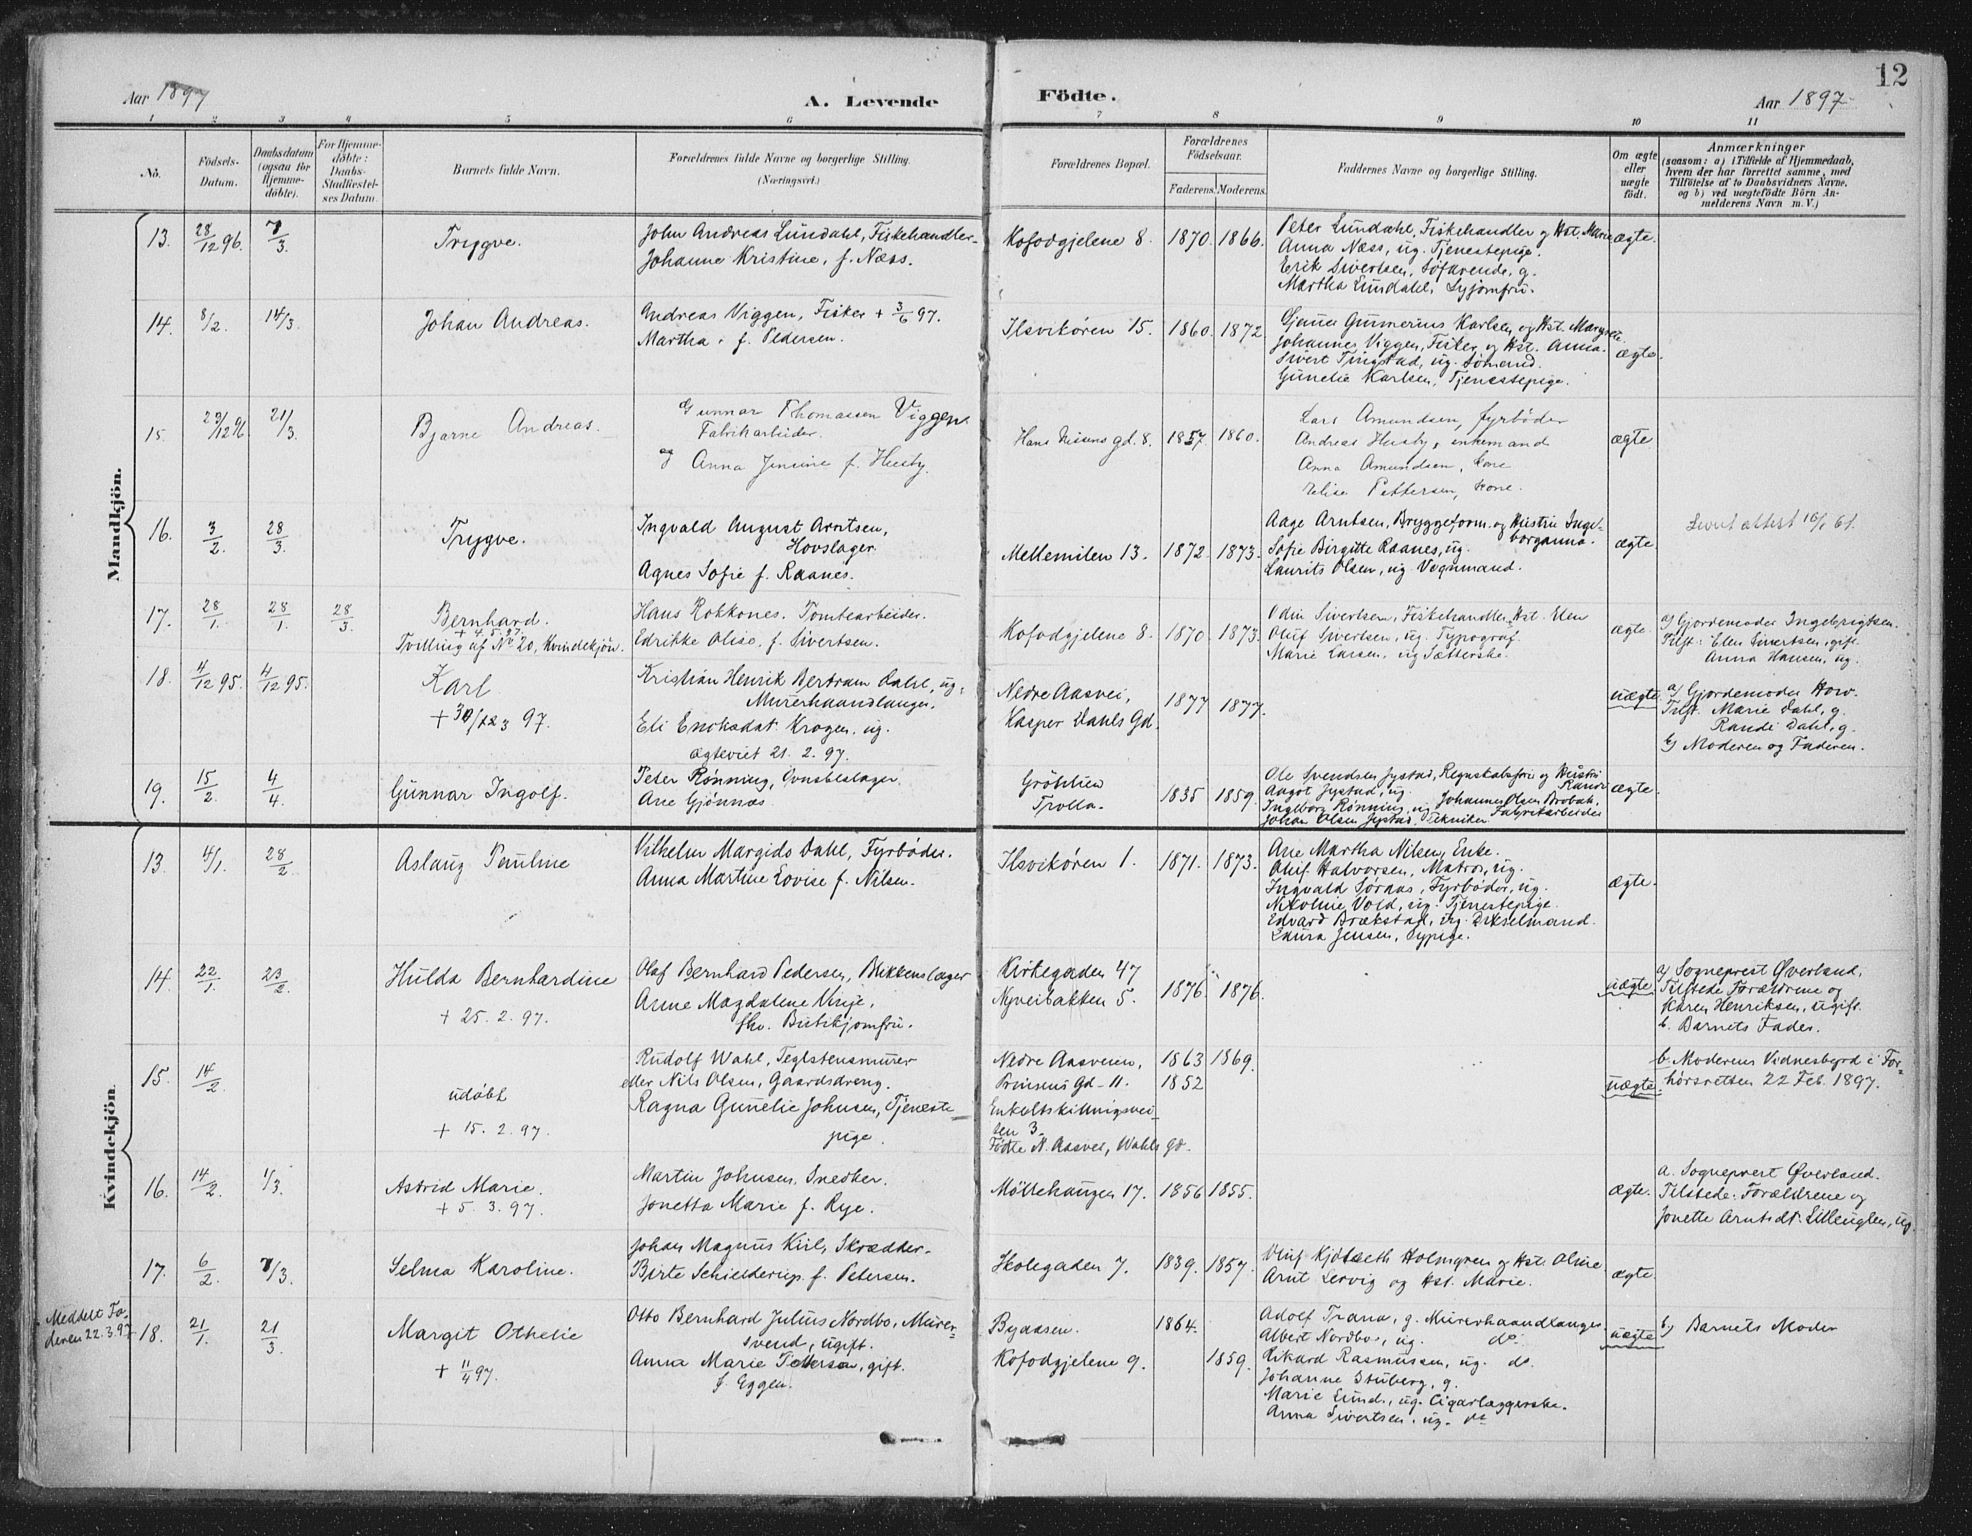 12
Aar 1897
A. Levende
Födte.
Aar 1897
1 2 3 4 5 6 7 8 9 10 11
No.
Födsels-
Datum.
Daabsdatum
(ogsaa för
Hjemme-
döbte).
For Hjemme-
döbte:
Daabs-
Stadfæstel-
ses Datum.
Barnets fulde Navn.
Forældrenes fulde Navne og borgerlige Stilling.
(Næringsvei.)
Forældrenes Bopæl.
Forældrenes
Födselsaar.
Faderens. Moderens.
Faddernes Navne og borgerlige Stilling.
Om ægte
eller
uægte
födt.
Anmærkninger
(saasom: a) i Tilfælde af Hjemmedaab,
hvem der har forrettet samme, med
Tilföielse af to Daabsvidners Navne,
og b) ved uægtefödte Börn An-
melderens Navn m. V.)
Mandkjön.
13. 28/12 96. 7/3 Trygve.
John Andreas Lundahl, Fiskehandler.
Johanne Kristine, f. Næss.
Kofodgjelene 8. 1870. 1866.
Peter Lundahl, Fiskehandler og Hst. Marie
Anna Næss, ug. Tjenestepige.
Erik Sivertsen, Søfarende, g.
Martha Lundahl, Syjomfru.
ægte.
14. 8/2. 14/3. Johan Andreas.
Andreas Viggen, Fisker + 3/6 97.
Martha, f. Pedersen.
Ilsvikøren 15. 1860. 1872.
Gunnerius Karlsen og Hst. Margrete.
Johannes Viggen, Fisker og Hst. Anna.
Sivert Tingstad, ug. Sømand.
Gunelie Karlsen, Tjenestepige.
ægte.
15. 29/12 96. 21/3. Bjarne Andreas.
Gunnar Thomassen Viggen
Fabrikarbeider.
og Anna Jensine f. Husby.
Hans Nisens gd. 8. 1857. 1860.
Lars Amundsen, fyrbøder
Andreas Husby, enkemand
Anna Amundsen, kone
Elise Pettersen, kone.
ægte
16. 3/2. 28/3. Trygve.
Ingvald August Arntsen,
Hovslager
Agnes Sofie f. Raanes.
Mellemilen 13. 1872. 1873.
Aage Arntsen, Bryggeform. og Hustru Inge-
borganna.
Sofie Birgitte Raanes, ug.
Laurits Olsen, ug Vognmand.
ægte.
17. 28/1. 28/1. 28/3 Bernhard.
+ 4. 5. 97.
Tvilling af No 20, Kvindekjön.
Hans Rokkones. Tomtearbeider.
Edrikke Olise, f. Sivertsen.
Kofodgjelene 8. 1870. 1873.
Odin Sivertsen, Fiskehandler, Hst. Elen
Oluf Sivertsen, ug. Typograf
Marie Larsen, ug Sætterske.
ægte.
a) Gjordemoder Ingebrigtsen.
Tilst: Elen Sivertsen, gift
Anna Hansen, ug.
18. 4/12 95. 4/12 95. Karl
Kristian Henrik Bertram Dahl, ug.
Murerhaandlanger.
Eli Enoksdat. Krogen. ug.
Ægteviet 21. 2. 97.
Nedre Aasvei,
Kasper Dahls Gd. 1877 1877.
uægte
a) Gjordemoder How.
Tilst. Marie Dahl, g.
Randi Dahl, g.
b) Moderen og Faderen.
19. 15/2. 4/4. Gunnar Ingolf.
Peter Rønning, Ovnsbeslager
Ane Gjønnæs.
Grøhlien
Trolla. 1835 1859.
Ole Svendsen Jystad, Regnskabsfører og Hustru
Aagot Jystad, ug.
Ingeborg Rønning, ug Johannes Olsen Brobak,
Johan Olsen Jystad, Tekniker Fabrikarbeider
ægte.
Kvindekjön
13. 4/1. 28/2 Aslaug Pauline
Vilhelm Margido Dahl, Fyrbøder.
Anna Martine Lovise f. Nilsen.
Ilsvikøren 1. 1871. 1873.
Ane Martha Nilsen, Enke.
Oluf Halvorsen, Matros, ug.
Ingvald Søraas, Fyrbøder, ug.
Nikoline Vold, ug. Tjenestepige.
Edvard Brækstad, ug.
Laura Jensen, Sypige.
ægte.
14. 22/1. 23/2. Hulda Bernhardine
+ 25. 2. 97.
Olaf Bernhard Pedersen, Blikkenslager
Anne Magdalene Vinje,
fhv. Butikjomfru.
Kirkegaden 47
Nyveibakken 5. 1876. 1876.
uægte
a) Sogneprest Øverland.
Tilstede Forældrene og
Karen Henriksen, ugift.
b. Barnets Fader.
15. 14/2 udøbt
+ 15. 2. 97.
Rudolf Wahl, Teglstensmurer
eller Nils Olsen, Gaardsdreng.
Ragna Gunelie Johnsen, Tjeneste-
pige.
Nedre Aasveien, 1863 1869.
Prinsens Gd - 11. 1852
Enkeltskillingsvei-
en 3.
Fødte N. Aasvei, Wahls Gd.
uægte.
b. Moderens Vidnesbyrd i For-
hørsretten 22 Feb. 1897.
16. 14/2. 1/3. Astrid Marie.
+ 5. 3. 97.
Martin Johnsen, Snedker.
Jonetta Marie f. Rye.
Møllehaugen 17. 1856 1855.
ægte.
a. Sogneprest Øverland.
Tilstede: Forældrene og
Jonette Arntsdt. Lilleuglen, ug.
17. 6/2. 7/3. Selma Karoline.
Johan Magnus Kiil, Skrædder.
Birte Schielderup f. Petersen.
Skolegaden 7. 1839. 1857.
Oluf Holmgren og Hst. Oline
Arnt Lervig og Hst. Marie.
ægte.
Meddelt Fa-
deren 22.3.97
18. 21/1. 21/3 Margit Othelie
+ 11/4 97.
Otto Bernhard Julius Nordbo, Murer-
svend, ugift.
Anna Marie Pettersen, gift.
f. Eggen.
Byaasen. 1864.
Kofodgjelene 9. 1859.
Adolf Trana, g. Murerhaandlanger
Albert Nordbo, ug. do.
Rikard Rasmussen, ug. do.
Johanne Stuberg, g.
Marie Lund, ug. Cigarlæggerske.
Anna Sivertsen, ug. do
uægte
b) Barnets Moder